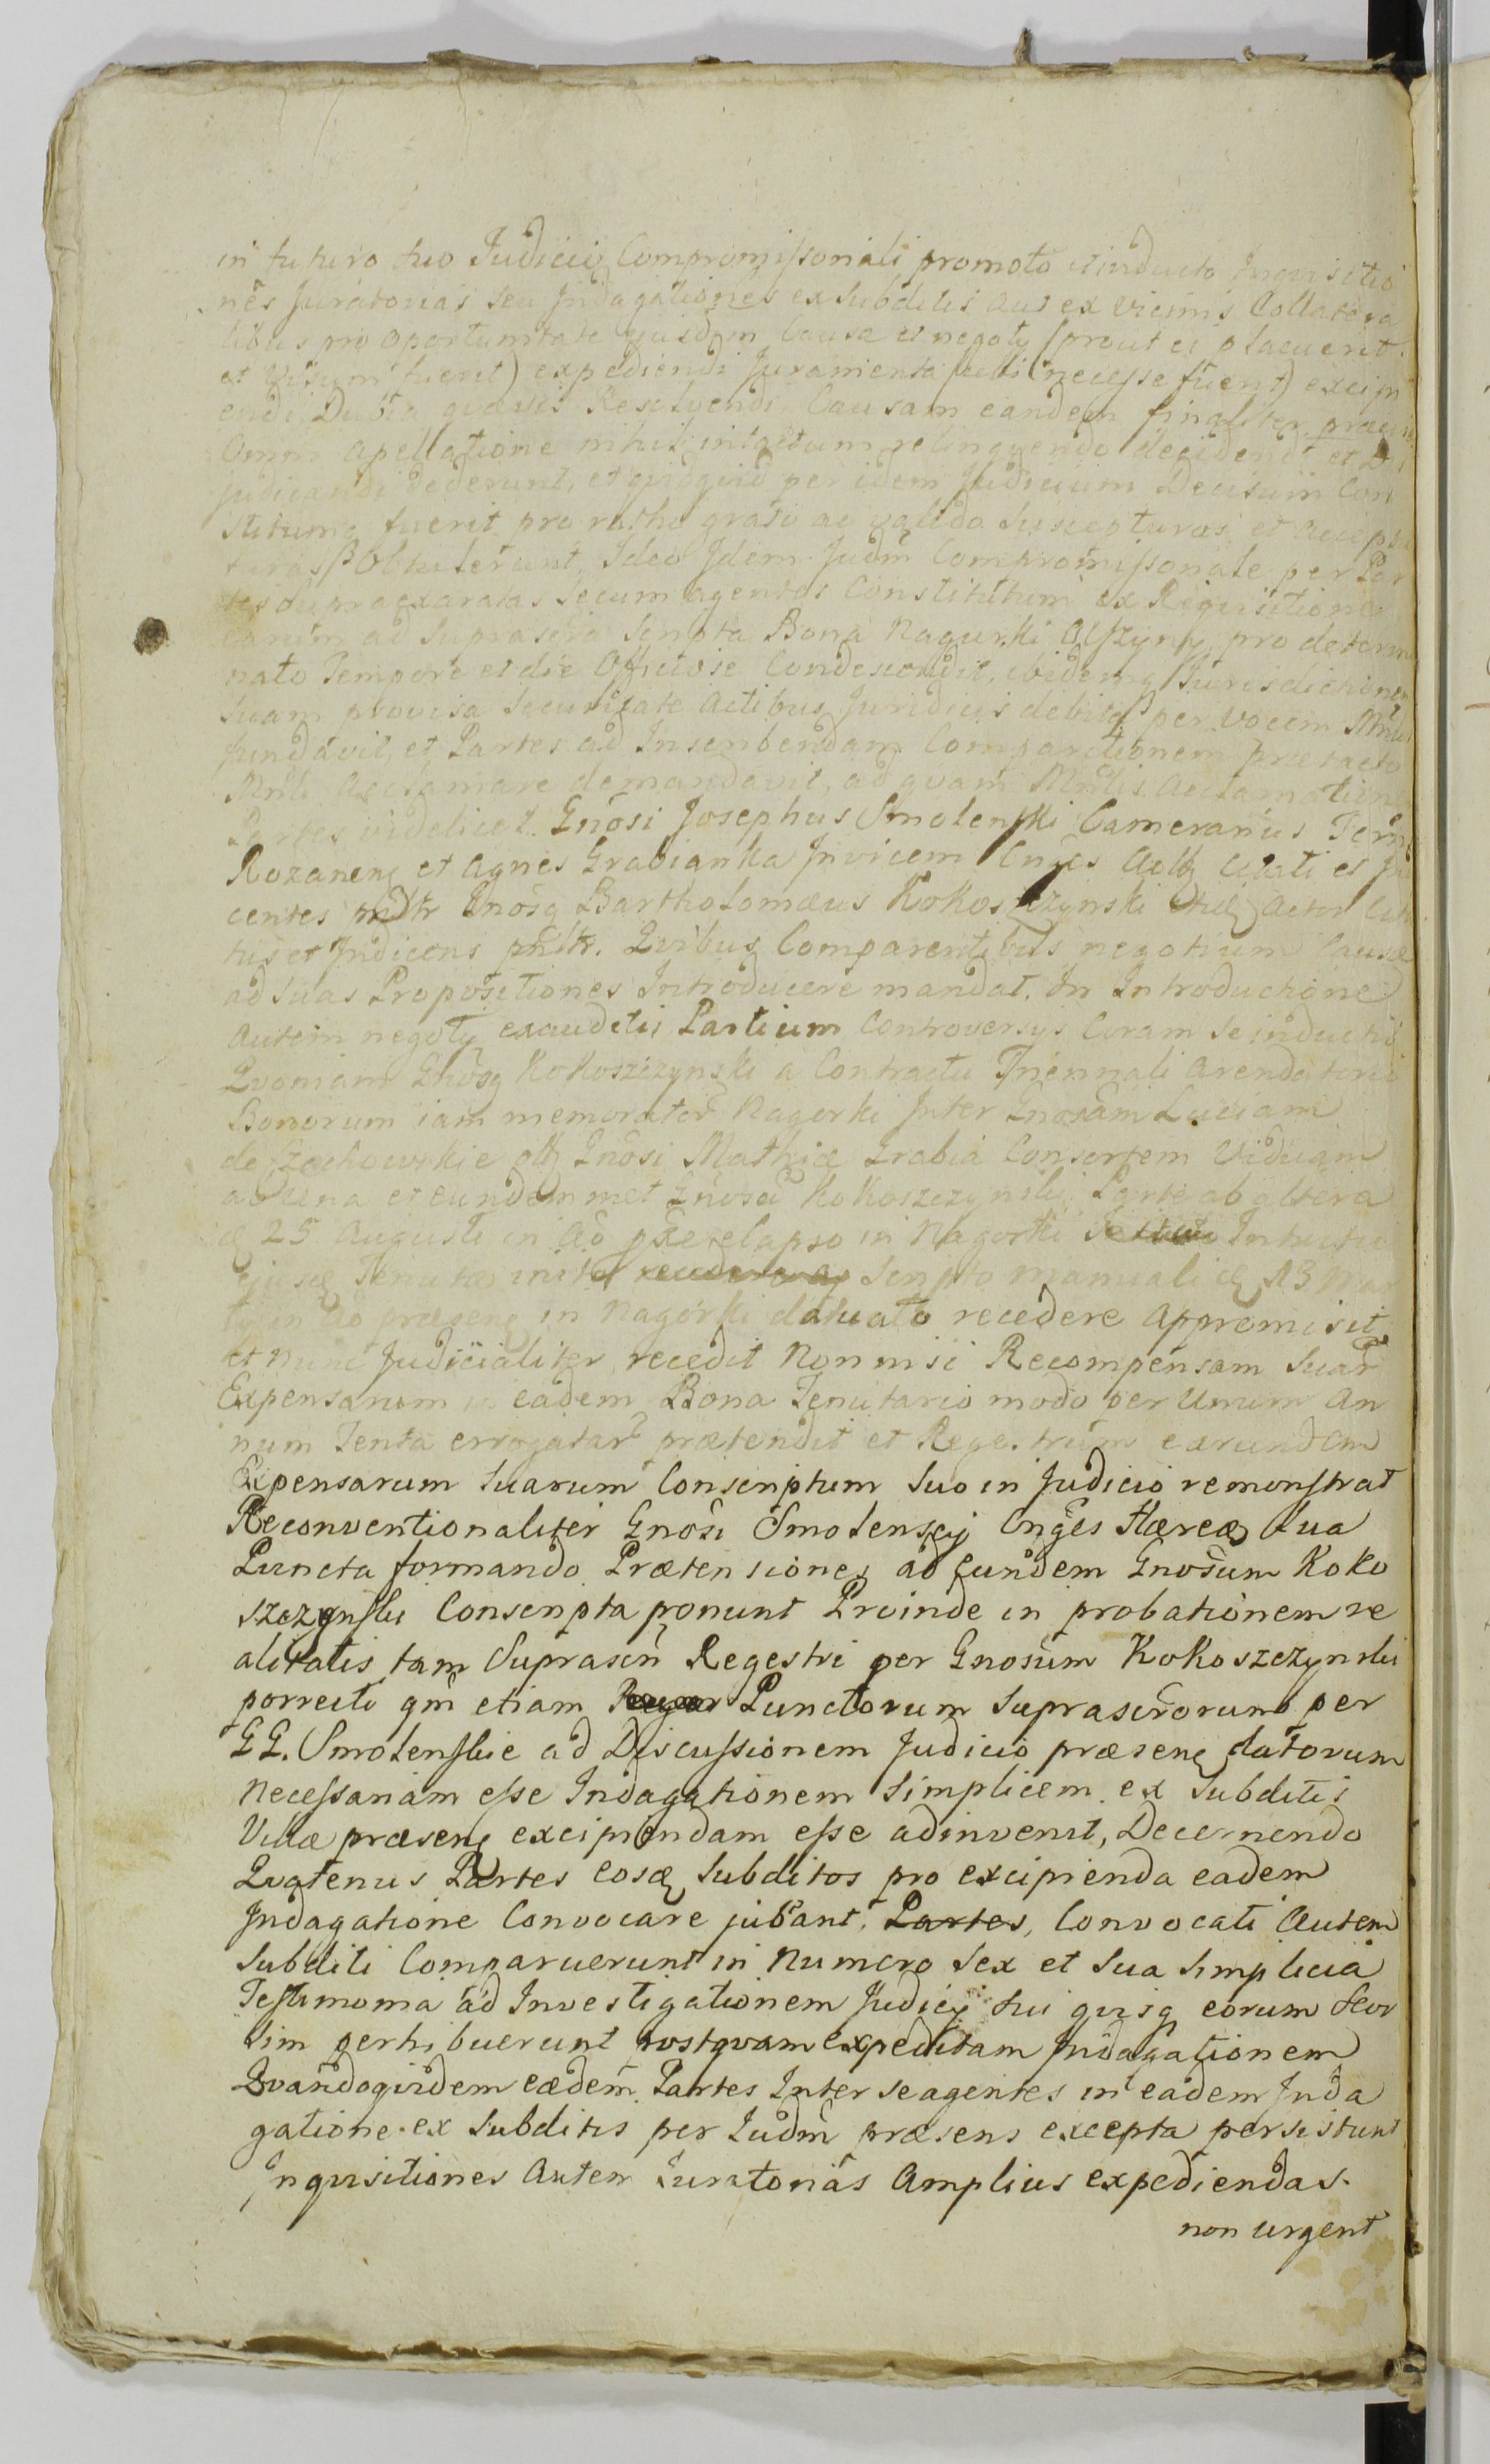 in futuro suo Judicio Compromissoriali promoto et inducto Inquisitio
nes Juratorias seu Indagationes ex Subditis aut ex vicinis Collatera
libus pro oportunitate ejusdem Causæ et negoty (prout ei placuerit
et visum fuerit) expediendi Juramenta (ubi necesse fuerit) excipi
endi Dubia quævis Resolvendi Causam eandem finaliter præcisa
Omni Apellatione nihil intactum relinquendo decidendi et Di
judicandi dederunt, et quidquid per idem Judicium Decisum Con
stitumq fuerit pro ratho grato ac valido suscepturos et accep
turas se Obtulerunt, Ideo Idem Judm Compromissoriale per Par
tes supraexaratas secum agentes Constitutum ex Requisitione
earum ad suprascrip Scripta Bona Nagurki Olszyny pro determi
nato Tempore et die Officiose Condescendit, ibidemq Jurisdictionem
suam provisa Securitate Actibus Juridicis debita per vocem Mnli
fundavit, et Partes ad Inscribendam Comparitionem prætacto
Mnli Acclamare demandavit, ad quam Mnlis Acclamationem
Partes videlicet Gnosi Josephus Smolenski Camerarius Terræ
Rozanenę et Agnes Grabianka Invicem Cnges Actę Citati et In
centes mdtr Gnosq Bartholomæus Kokoszczynski Actor Cita
tus et Indicens pnltr. Quibus Comparentibus negotium Causæ
ad suas Propositiones Introducere mandat. In Introductione
autem negoty exauditis Partium Controversys Coram se inductis
Quoniam Gnosq Kokoszczynski a Contractu Triennali Arendatorio
Bonorum iam memorator Nagorki Inter Gnosam Luciam
de Czochowskie olę Gnosi Mathiæ Grabia Consortem Viduam
ab una et eundemmet Gnosu Kokoszczynski Parte ab altera
æ 25 Augusti in Ao pxe elapso in Nagorki Intuitu
ejusę Tenutæ inito recedere aę Scripto manuali æ 13 Mar
ty in Ao præsenę in Nagórki datuato recedere appromisit
et nunc Judicialiter recedit Non nisi Recompensam suar
Expensarum in eadem Bona Tenutario modo per Unum An
num Tenta errogatar prætendit et Regestrum earundem
Expensarum suarum Conscriptum suo in Judicio remonstrat
Reconventionaliter Gnosi Smolenscy Cnges Hæreę sua
Puncta formando Prætensiones ad eundem Gnosum Koko
szczynski Conscripta ponunt Proinde in probationem re
alitatis tam Suprascri Regestri per Gnosum Kokoszczynski
porrecti qm etiam Punctorum suprascrorum per
GG. Smolenskie ad Discussionem Judicio præsenę datorum
necessariam esse Indagationem simplicem ex subditis
Villæ præsenę excipiendam esse adinvenit, Decernendo
Quatenus Partes eosę subditos pro excipienda eadem
Indagatione Convocare jubant, Partes, Convocati Autem
Subditi Comparuerunt in Numero Sex et Sua simplicia
Testimonia ad Investigationem Judicy sui quisq eorum seor
sim perhibuerunt postquam expeditam Indagationem
Quandoquidem eædem Partes Inter se agentes in eadem Inda
gatione ex subditis per Judm præsens excepta persistunt
Inquisitiones Autem Juratorias Amplius expediendas.
non urgent